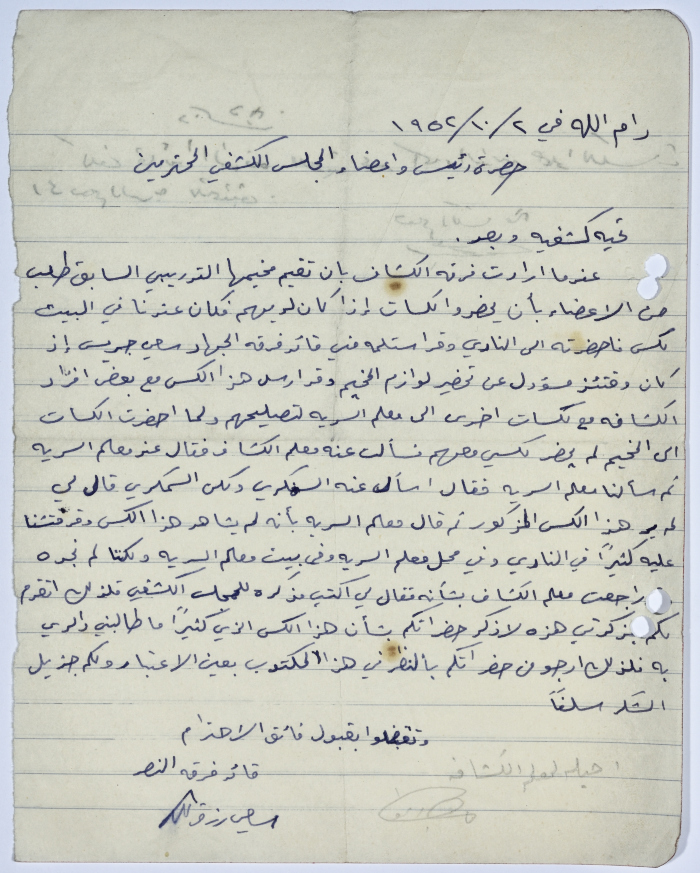 رام الله في ٢/١٠/١٩٥٢
حضرة رئيس واعضاء المجلس الكشفي المحترمين
تحيه كشفيه وبعد.
عندما ارادت فرقه الكشاف بان تقيم مخيمها التدريبي السابق طلب
من الاعضاء بأن يحضروا لكسات إذا كان لديهم فكان عندنا في البيت
لكس فاحضرته الى النادي وقد استلمه مني قائد فرقه الجهاد سامي جريس إذ
كان وقتئذ مسؤول عن تحضير لوازم المخيم وقد ارسل هذا الكس مع بعض افراد
الكشافه مع لكسات اخرى الى معلم السريه لتصليحهم ولما احضرت الكسات
الى المخيم لم يحضر لكسي معهم فسألت عنه معلم الكشاف فقال عند معلم السريه
ثم سألنا معلم السريه فقال اسأل عنه السمكري ولكن السمكري قال لي
لم ير هذا الكس المذكور ثم قال معلم السريه بأنه لم يشاهد هذا الكس وقد فتشنا
عليه كثيرًا في النادي وفي محل معلم السريه وفي بيت معلم السريه ولكنا لم نجده
راجعت معلم الكشاف بشأنه فقال لي اكتب مذكره للمجلس الكشفي فلذلك اتقدم
لكم بمذكرتي هذه لاذكر حضراتكم بشأن هذا الكس الذي كثيرًا ما طالبني والدي
به فلذلك ارجو من حضراتكم بالنظر في هذا المكتوب بعين الاعتبار ولكم جزيل
الشكر سلفاً
وتفضلوا بقبول فائق الاحترام
قائد فرقه النسر
سامي رزق الله
احيله لمعلم الكشافه